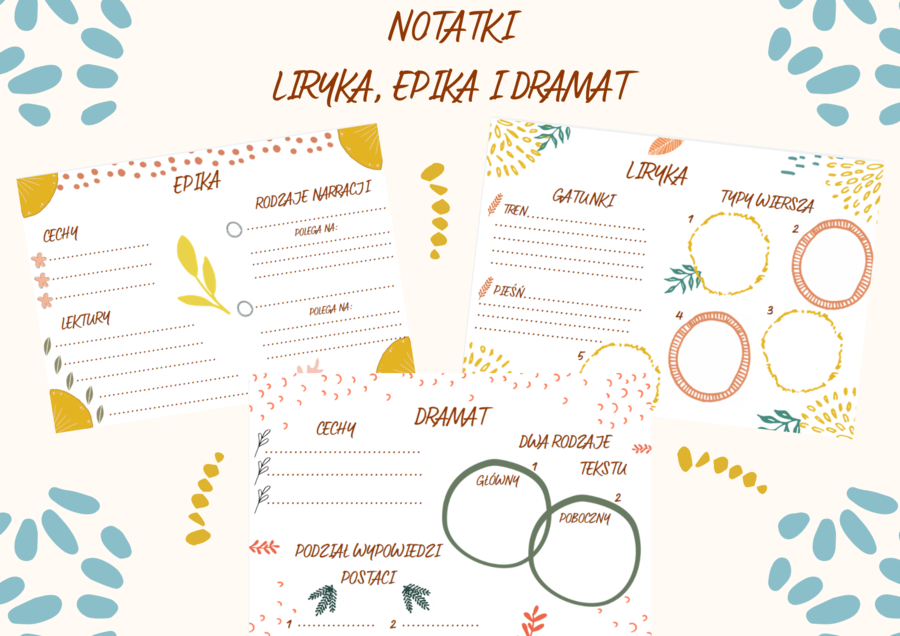 NOTATKI
LIRYKA, EPIKA I DRAMAT
EPIKA
CECHY
LEKTURY
RODZAJE NARRACJI
POLEGA NA:
POLEGA NA:
LIRYKA
GATUNKI
TREN
PIEŚŃ
TYPY WIERSZA
1
2
4
3
5
DRAMAT
CECHY
DWA RODZAJE
TEKSTU
1
GŁÓWNY
2
POBOCZNY
PODZIAŁ WYPOWIEDZI
POSTACI
1
2